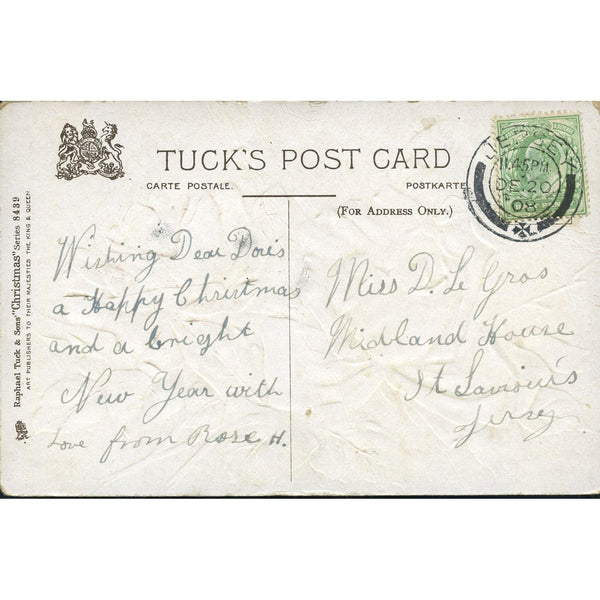 TUCK'S POST CARD
CARTE POSTALE.
POSTKARTE
(FOR ADDRESS ONLY.)
JERSEY
11.45PM
DE 20
08
Raphael Tuck & Sons' "Christmas" Series 8439
ART PUBLISHERS TO THEIR MAJESTIES THE KING & QUEEN
Wishing Dear Doris
a Happy Christmas
and a bright
New Year with
Love from Rose H.
Miss D. Le Gros
Midland House
St Saviour's
Jersey